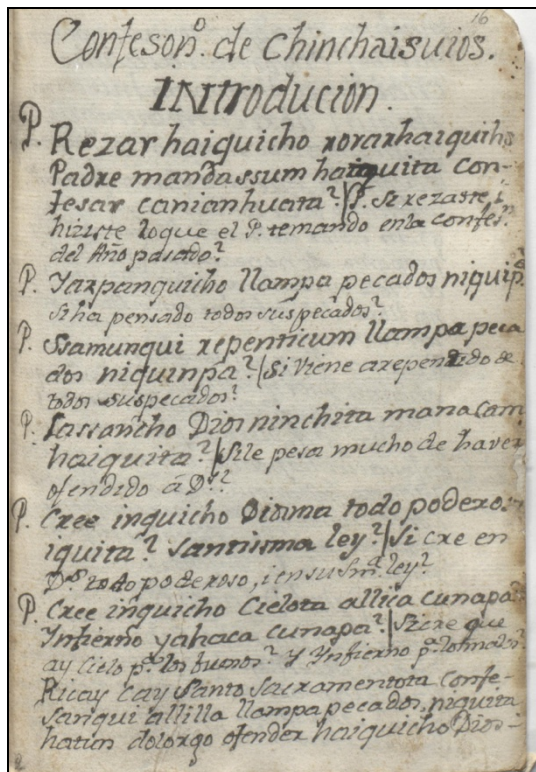 16
Confeson.º de Chinchaisuios.
INtroducion.
P. Rezar haiquicho rorarhaiquiho
Padre mandassum haiquita con-
fesar canianhuata? / P. Si rezaste, i
hiziste loque el P. temando enla confes.n
del Año pasado?
P. Yarpanquicho llampa pecados niquip.ª
Si ha pensado todos sus pecados?
P. Ssamunqui repenticum llampa peca
dos niquinpa? / Si Viene arependido de
todos sus pecados?
P. Lassancho Dios ninchita mana cam
haiquita? / Sile pesa mucho de haver
ofendido â D.s?
P. Cree inquicho Diosma todo poderos-
iquita? Santissma ley? / Si cre en
D.s todo poderoso, i ensu Sm.ª ley?
P. Cree inquicho Cielota allica cunapa?
Ynfierno yahaca cunapa? / Si cre que
ay Cielo p.ª los buenos? Y Ynfierno p.ª los malos?
Ricay cay Santo Sacramentota Confe-
sanqui allilla llampa pecados niquita
hatun dolorgo ofender haiquicho Dios-